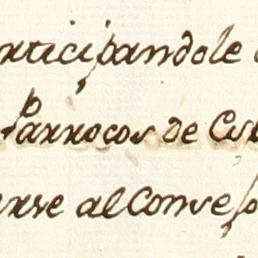 rticipandole
Parrocos de Est
rse al Conse